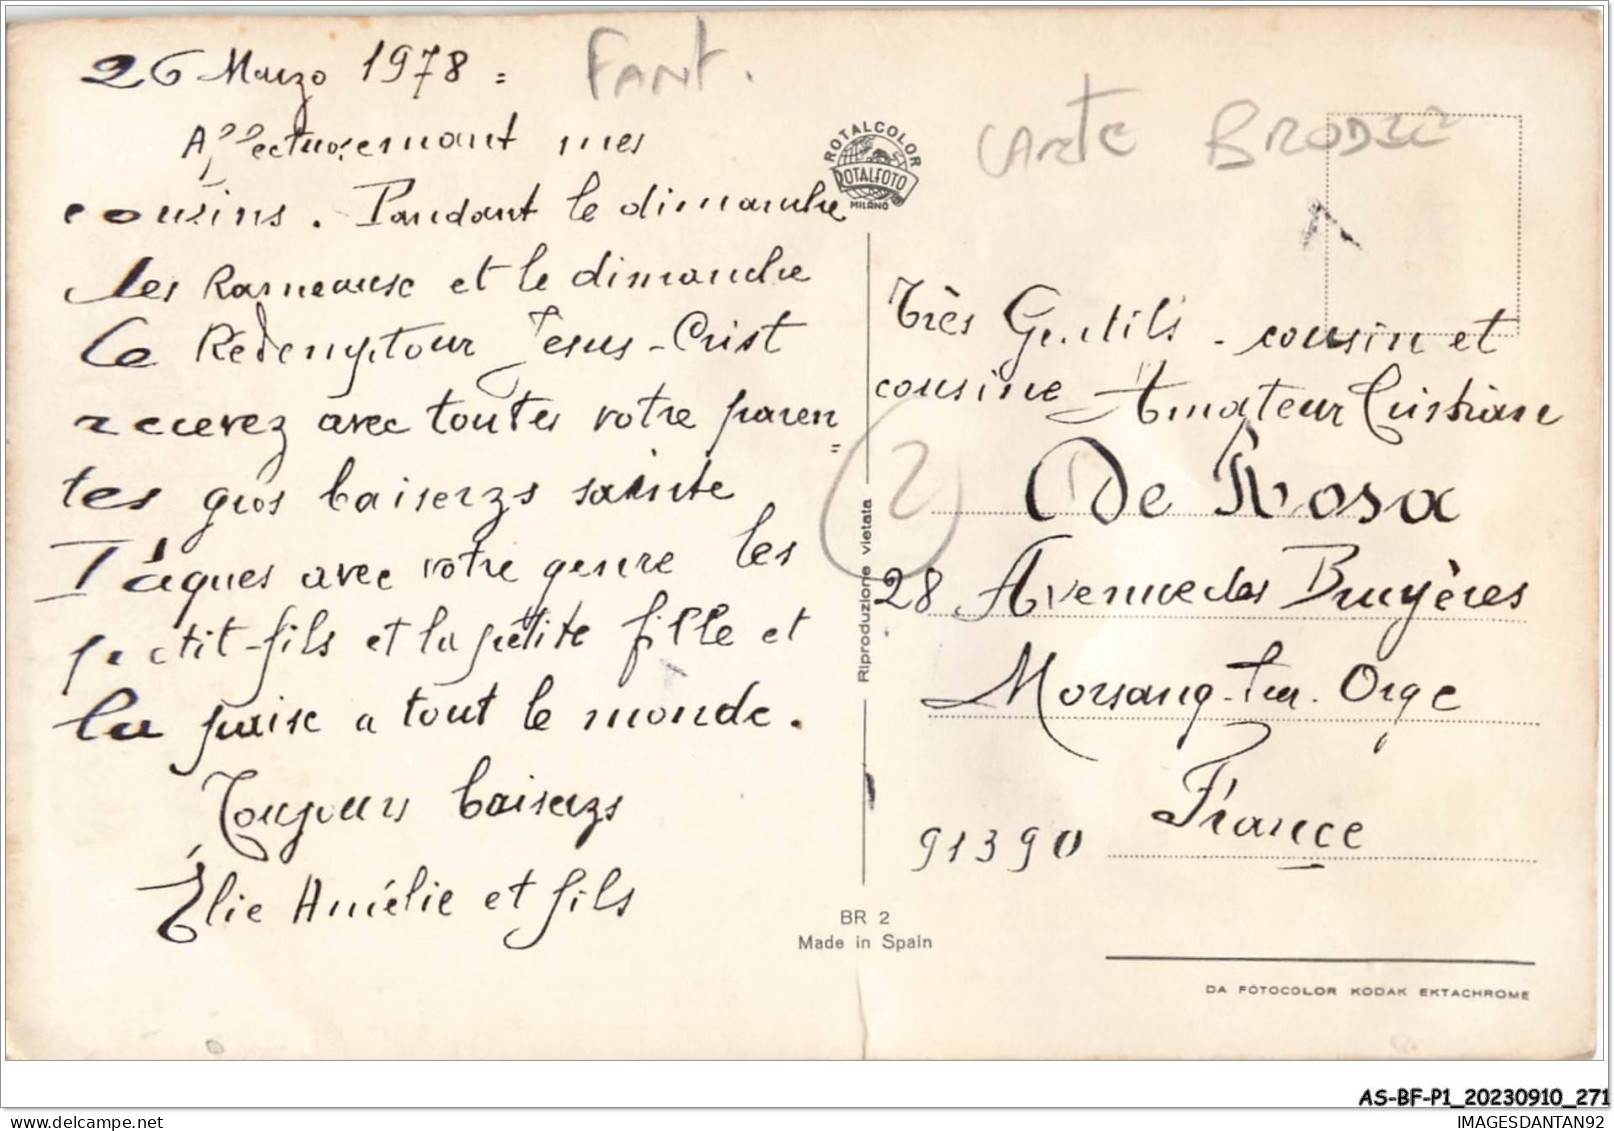 26 Marzo 1978 =
Affectuosemant mes
cousins. Pandant le dimanche
des Rameause et le dimanche
Le Rédemptour Jesus-Crist
recevez avec toutes votre paren
=
tes gros baiserzs sainte
Pâques avec votre genre les
petit-fils et la petite fille et
la paise a tout le monde.
Toujours baiserzs
Élie Amélie et fils
FANT.
CARTE BRODEE
ROTALCOLOR
ROTALFOTO
MILANO
Riproduzione vietata
2
Très Gentils - cousin et
cousine Amateur Cristian
De Rosa
28 Avenue des Bruyères
Morsang-sur-Orge
France
91390
BR 2
Made in Spain
DA FOTOCOLOR KODAK EKTACHROME
AS-BF-P1_20230910_271
IMAGESDANTAN92